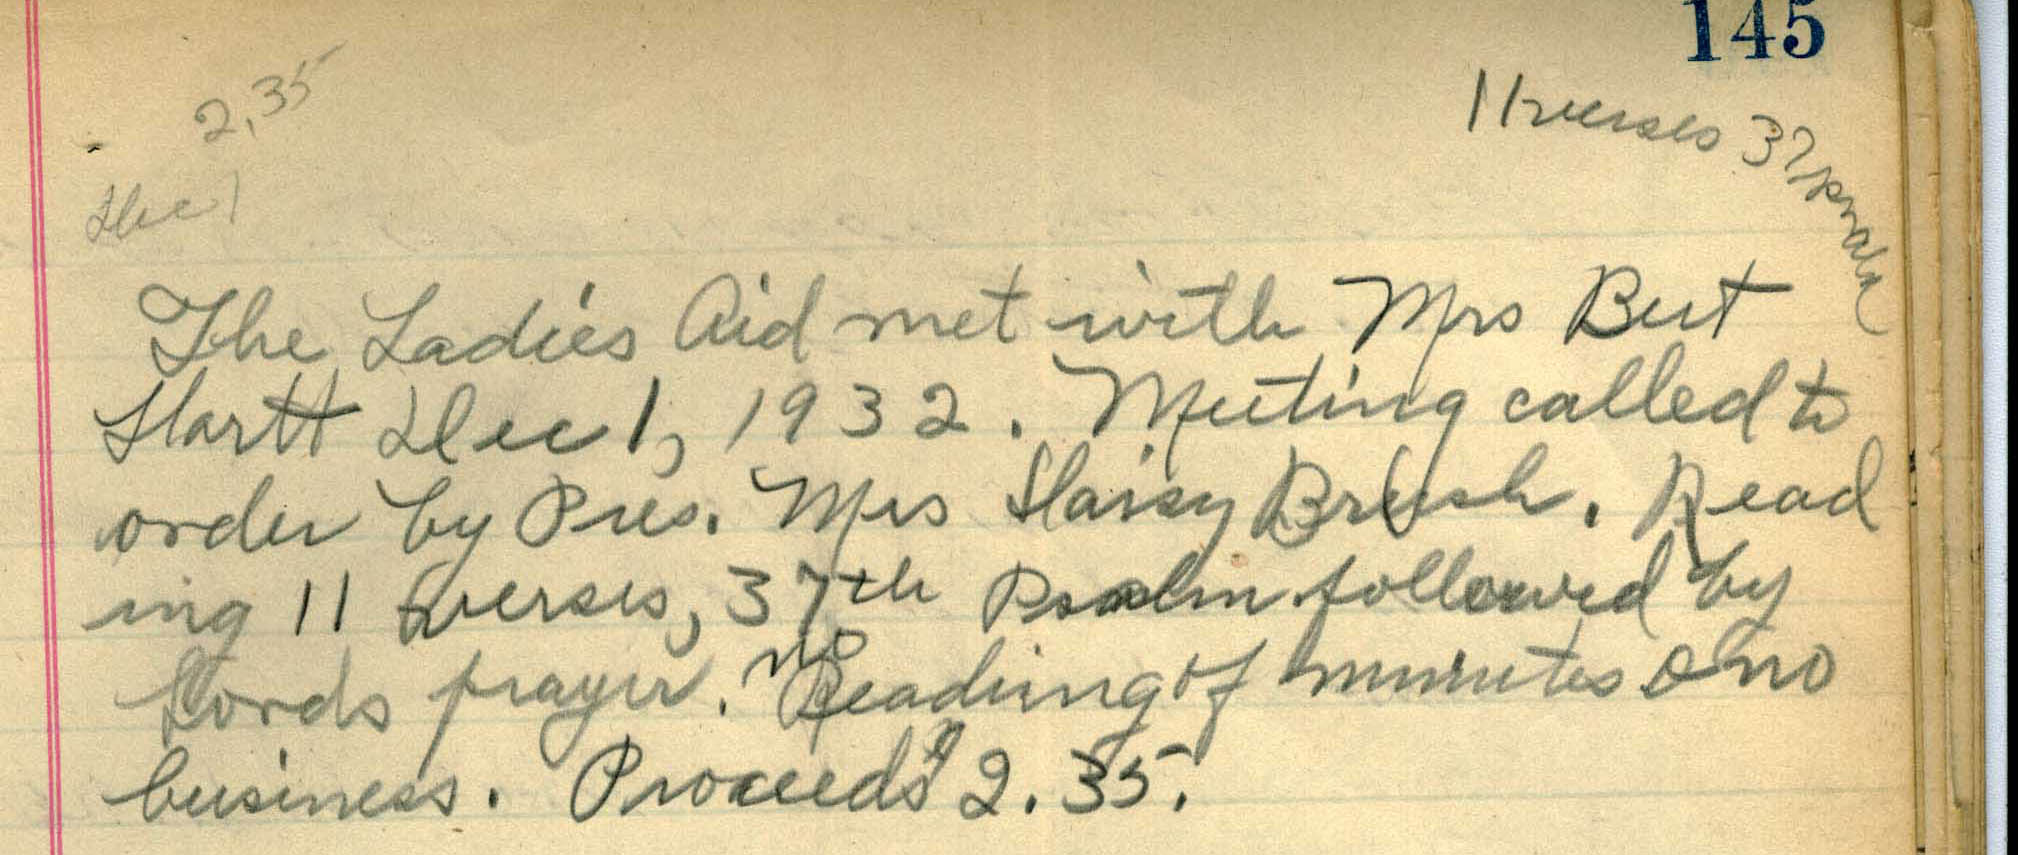 145
2,35
11 verses 37 psalm
Dec 1
The Ladies Aid met with Mrs Bert
Hartt Dec 1, 1932. Meeting called to
order by Pres. Mrs Daisy Brush. Read
ing 11 verses, 37th Psalm followed by
Lords prayer. no Reading of minutes & no
business. Proceeds 2.35.